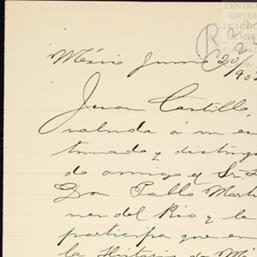 CENTRO
ESTUDI
DE HIST
DE MÉX
México Junio 20/
90
Juan Castillo,
saluda á su es
timado y distingui
do amigo el Sr. L
Don Pablo Martí
nez del Rio y le
participa que en
la Historia de Mé